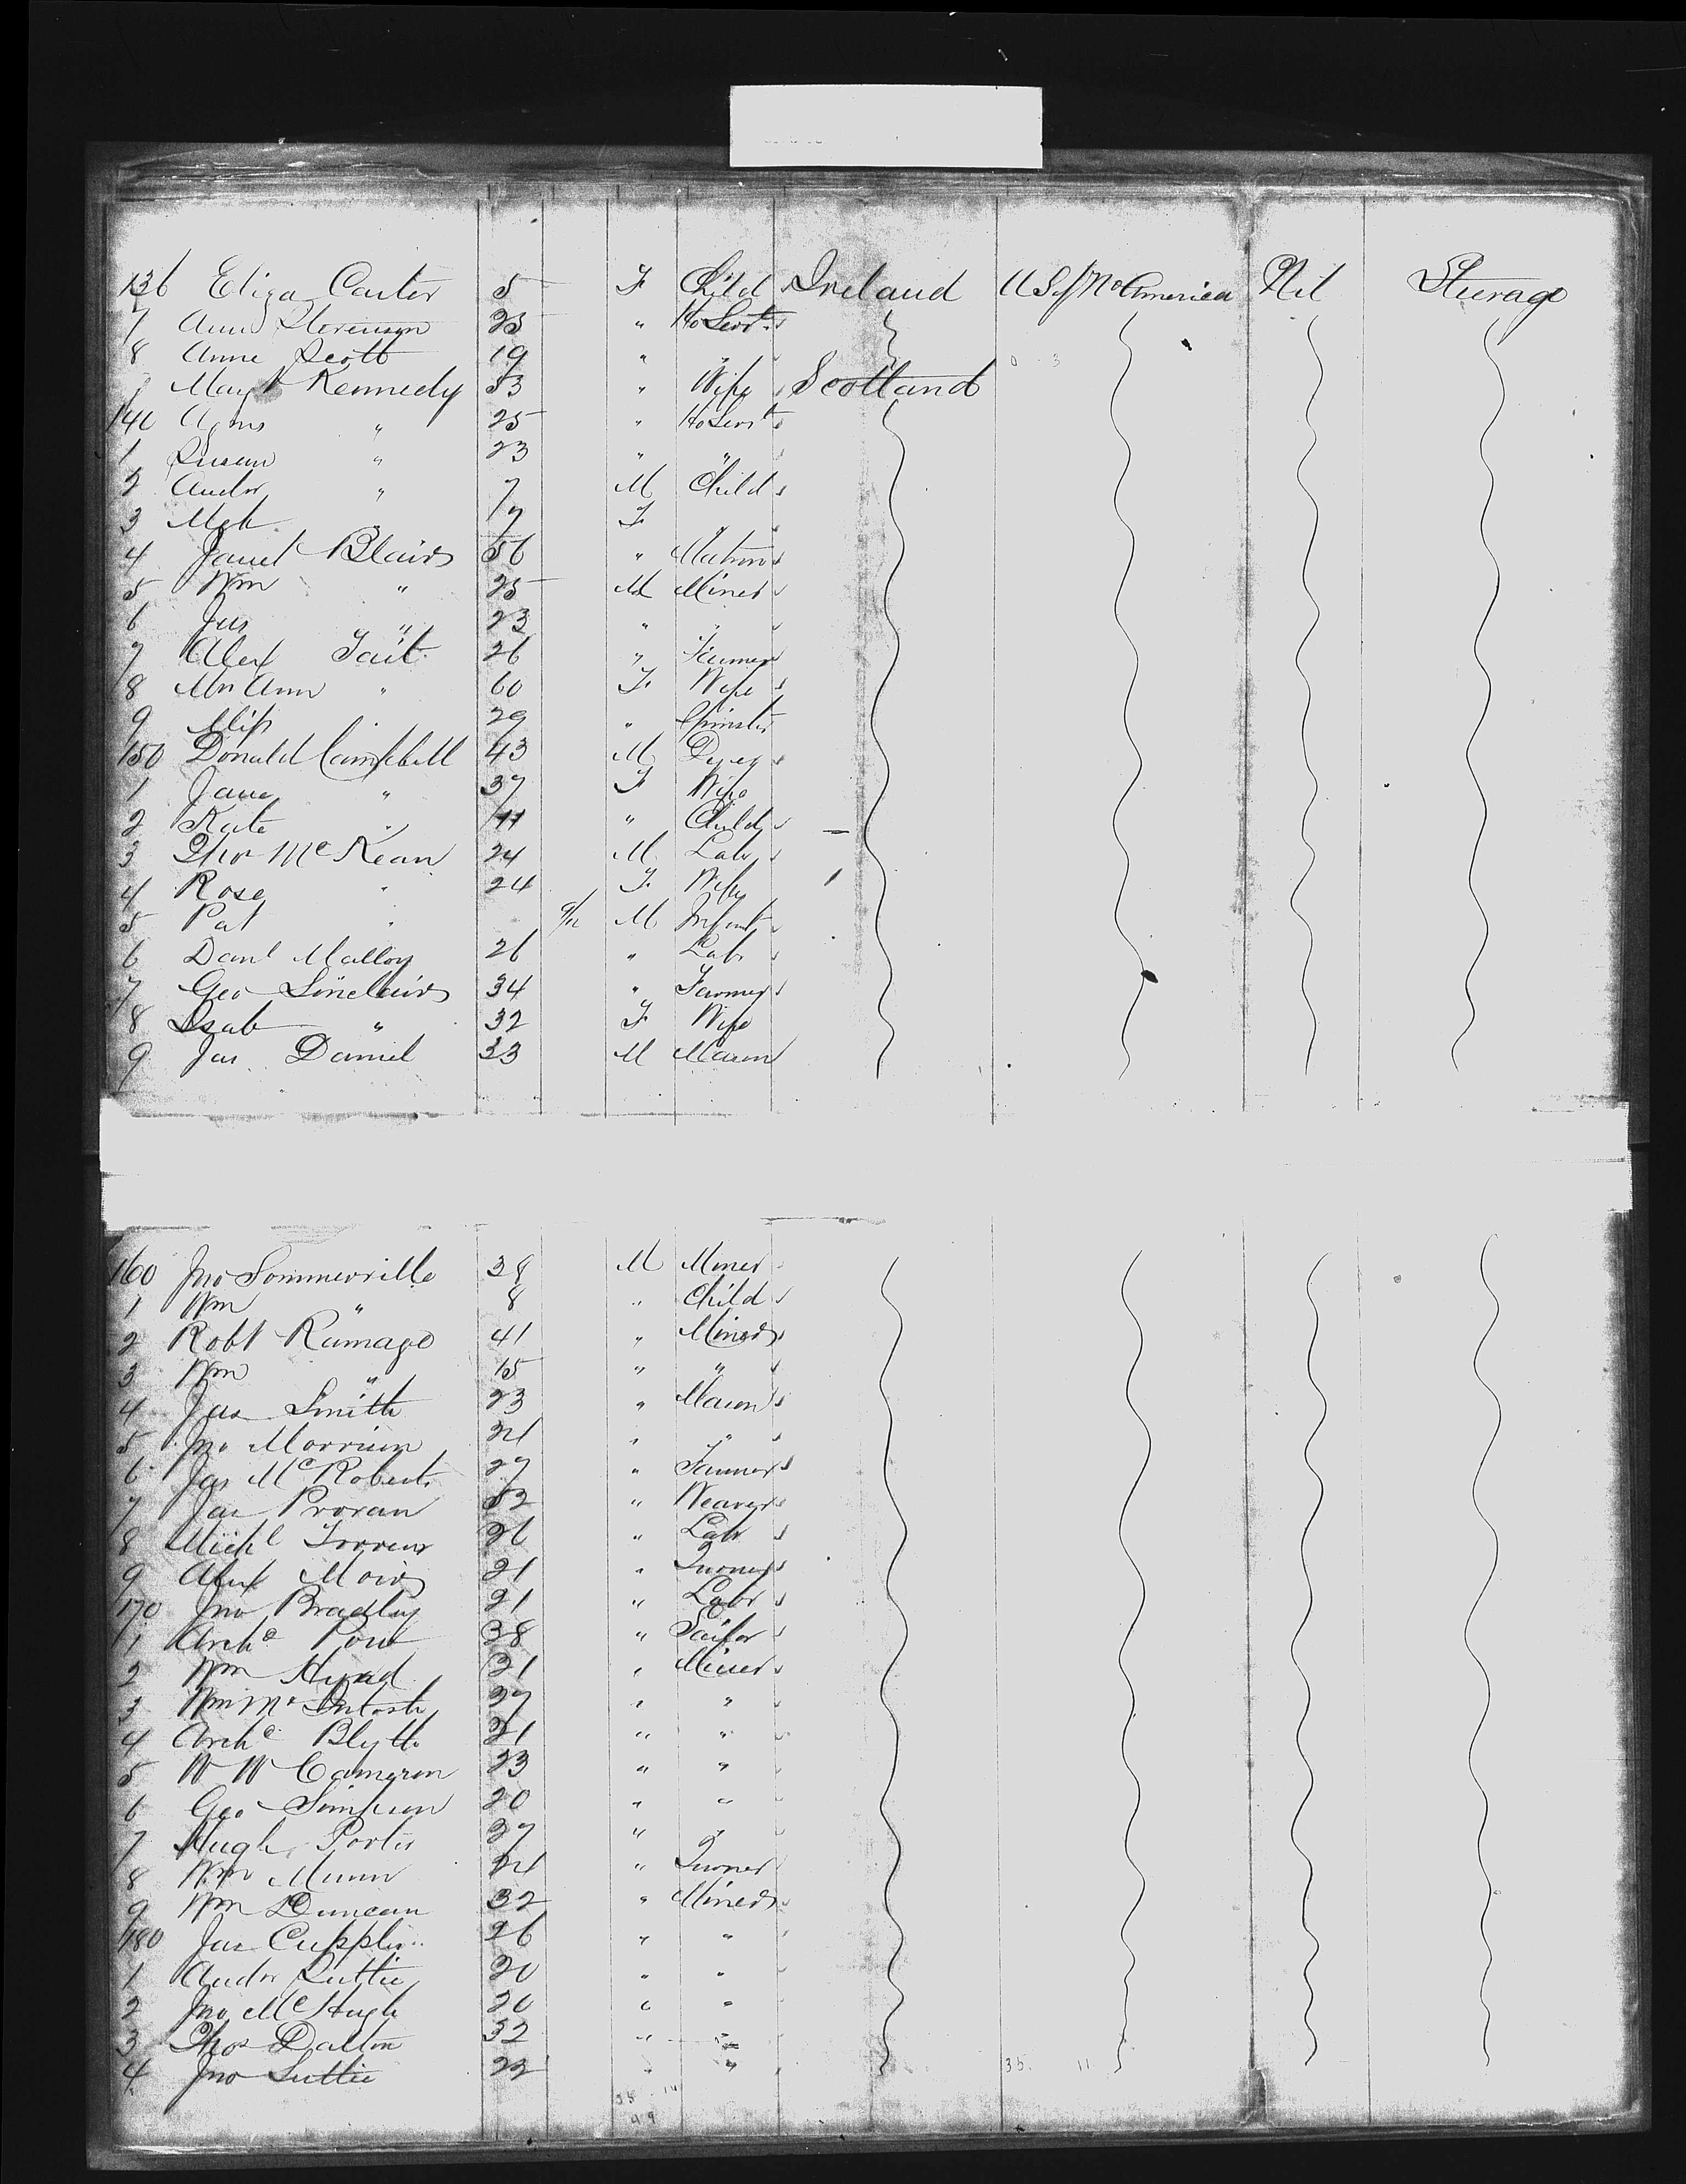 136 Eliza Carter 5 F Child Ireland U S of No America Nil Steerage
7 Ann Stevenson 25 " Ho Servt
8 Anne Scott 19 " "
9 Magt Kennedy 53 " Wife Scotland
140 Agnes " 25 " Ho Servt
1 Susan " 23 " "
2 Andw " 7 M Child
3 F "
4 Janet Blair 56 " Matron
5 Wm " 25 M Miner
6 Jas " 23 " "
7 Alex Tait 26 " Farmer
8 Mrs Ann " 60 F Wife
9 Miss " 29 " Spinster
150 Donald Campbell 43 M Dyer
1 Jane " 37 F Wife
2 Kate " 11 " Child
3 Thos McKean 24 M Labr
4 Rose " 24 F Wife
5 Pat " 9/12 M Infant
6 Danl Malloy 26 " Labr
7 Geo Sinclair 34 " Farmer
8 Isab " 32 F Wife
9 Jas Daniel 33 M Mason
160 Jno Sommerville 38 M Miner
1 Wm " 8 " Child
2 Robt Ramage 41 " Miner
3 Wm " 15 " "
4 Jas Smith 23 " Mason
5 Jno Morrison 24 " "
6 Jas McRoberts 27 " Farmer
7 Jas Provan 52 " Weaver
8 Michl 26 " Labr
9 Alex Moir 21 " Turner
170 Jno Bradley 21 " Labr
1 Archd 38 " Tailor
2 Wm 21 " Miner
3 Wm McIntosh 27 " "
4 Archd Blyth 21 " "
5 W W Cameron 23 " "
6 Geo Simpson 20 " "
7 Hugh Porter 27 " "
8 Wm Munn 24 " Turner
9 Wm Duncan 32 " Miner
180 Jas Cupples 26 " "
1 Andw Suttie 20 " "
2 Jno McHugh 20 " "
3 Thos Dalton 32 " "
4 Jno Suttie 22 " "